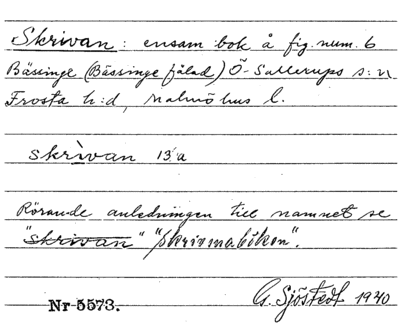 Skrivan: ensam bok å fig. num. 6
Bässinge (Bässinge fälad) Ö-Sallerups s:n
Frosta h:d, Malmöhus l.
skrìvan 13a
Rörande anledningen till namnet se
"skrivan" "Skrivmaböken".
Nr 5573. G. Sjöstedt 1940